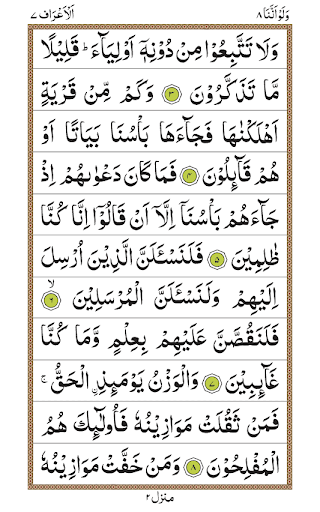 وَلَوْ اَنَّنَا ٨ اَلْاَعْرَاف ٧
وَلَا تَتَّبِعُوْا مِنْ دُوْنِهٖۤ اَوْلِيَآءَ ؕ قَلِيْلًا
مَّا تَذَكَّرُوْنَ ٣ وَكَمْ مِّنْ قَرْيَةٍ
اَهْلَكْنٰهَا فَجَآءَهَا بَاْسُنَا بَيَاتًا اَوْ
هُمْ قَآئِلُوْنَ ٤ فَمَا كَانَ دَعْوٰىهُمْ اِذْ
جَآءَهُمْ بَاْسُنَاۤ اِلَّاۤ اَنْ قَالُوْۤا اِنَّا كُنَّا
ظٰلِمِيْنَ ٥ فَلَنَسْـَٔلَنَّ الَّذِيْنَ اُرْسِلَ
اِلَيْهِمْ وَلَنَسْـَٔلَنَّ الْمُرْسَلِيْنَ ۙ ٦
فَلَنَقُصَّنَّ عَلَيْهِمْ بِعِلْمٍ وَّمَا كُنَّا
غَآئِبِيْنَ ٧ وَالْوَزْنُ يَوْمَئِذِ ࣙالْحَقُّ ۚ
فَمَنْ ثَقُلَتْ مَوَازِيْنُهٗ فَاُولٰٓئِكَ هُمُ
الْمُفْلِحُوْنَ ٨ وَمَنْ خَفَّتْ مَوَازِيْنُهٗ
منزل ٢